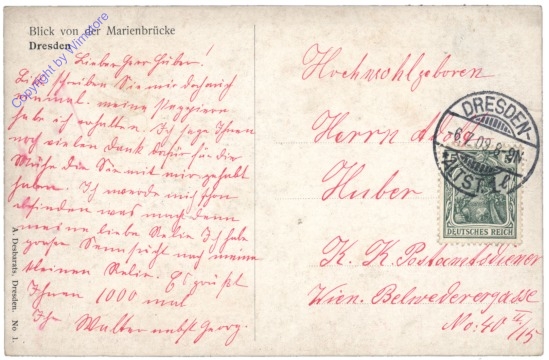 Blick von der Marienbrücke
Dresden
Copyright by Winstore
Lieber Herr Huber!
Bitte schreiben Sie mir doch
einmal. meine
habe ich erhalten. Ich sage Ihnen
noch vielen Dank dafür für die
Mühe die Sie mit mir gehabt
haben. Ich werde mich schon
was macht denn
meine liebe Relie Ich habe
große Sehnsucht nach meine
kleinen Relie. Es grüßt
Ihnen 1000 mal
Ihr Walter nebst Georg.
A. Desbarats, Dresden. No 1.
Hochwohlgeboren
Herrn
Huber
K. K. Postamtsdiener
Wien. Belwederergasse
No: 40 II/15
DRESDEN-
ALTST. 1
DEUTSCHES REICH